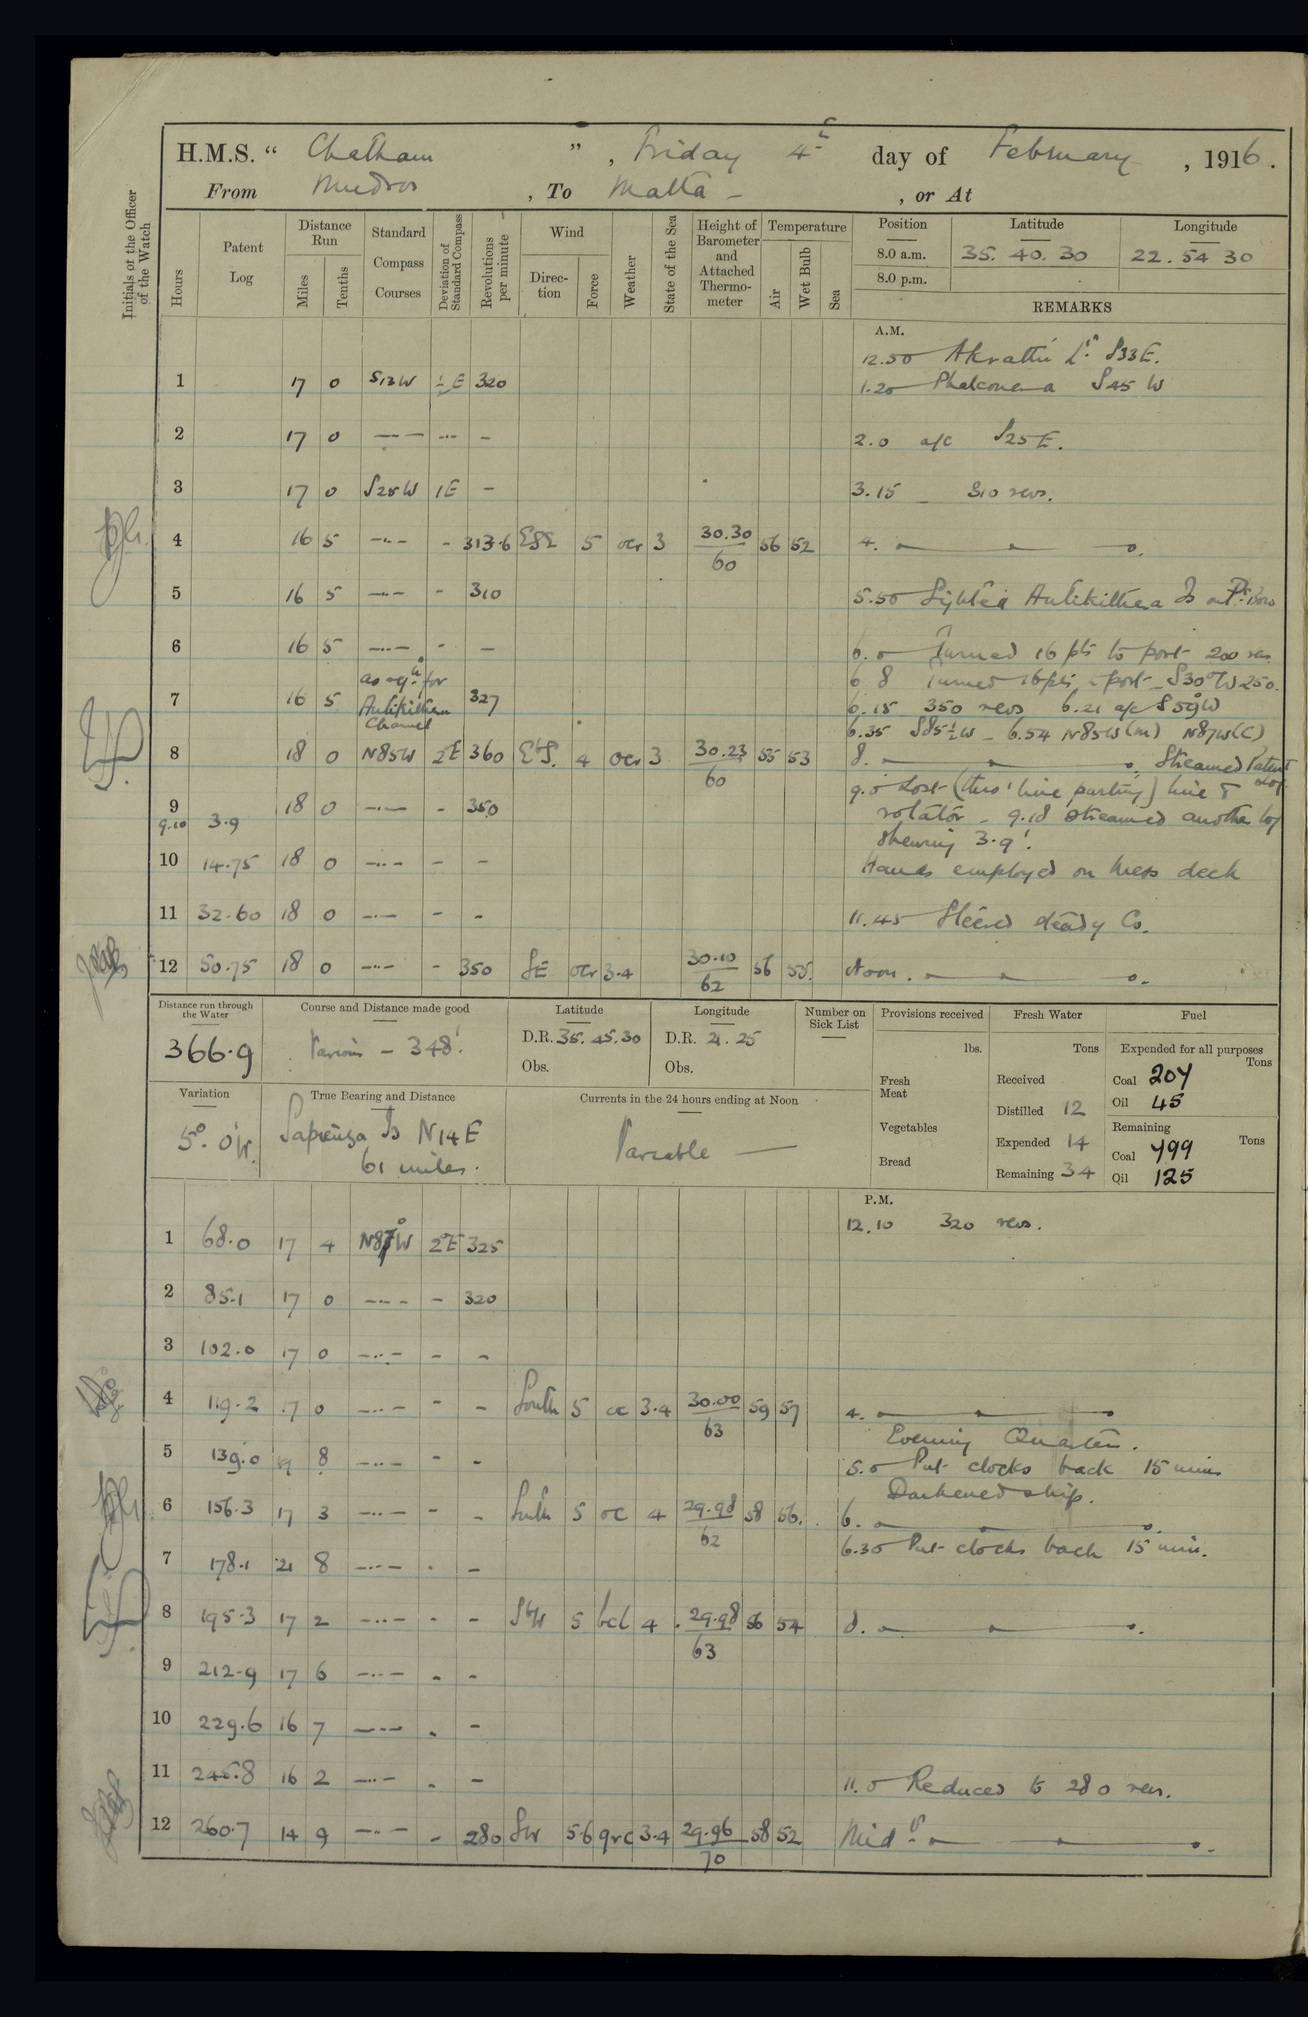 H.M.S. “ Chatham ” , Friday 4th day of February , 1916 .
From Mudros , To Malta - , or At
Initials of the Officer of the Watch
Hours
Patent Log
Distance Run
Miles
Tenths
Standard Compass Courses
Deviation of Standard Compass
Revolutions per minute
Wind
Direction
Force
Weather
State of the Sea
Height of Barometer and Attached Thermometer
Temperature
Air
Wet Bulb
Sea
Position Latitude Longitude
8.0 a.m. 35. 40. 30 22. 54 30
8.0 p.m.
REMARKS
A.M.
12.50 Lt. S33E.
1 17 0 S12W ½E 320 1.20 Phalconera S45 W
2 17 0 —··— -··- - 2.0 a/c S25E.
3 17 0 S25W 1E - 3.15 - 310 revs.
4 16 5 —··— - 313.6 ESE 5 ocr 3 30.30/60 56 52 4.
5 16 5 —··— - 310 5.50 Sighted Antikithera Is on Pt. Bow
6 16 5 —··— - — 6.0 Turned 16 pts to port 200 revs
6 8 Turned 16pts - port - S30°W 250.
7 16 5 as reqd. for Antikithera Channel 327 6.15 350 revs 6.21 a/c S59W
6.35 S85½W - 6.54 N85W(m) N87W(C)
8 18 0 N85W 2E 360 E'S. 4 ocr 3 30.23/60 55 53 8. Streamed Patent Log
9 18 0 —··— - 350 9.0 Lost (thro' line parting) line &
9.10 3.9 rotator - 9.10 streamed another log
shewing 3.9'.
10 14.75 18 0 —··— - - Hands employed on mess deck
11 32.60 18 0 —··— - - 11.45 Steered steady Co.
12 50.75 18 0 —··— - 350 SE ocr 3.4 30.10/62 56 55. Noon.
Distance run through the Water
366.9
Course and Distance made good
Various - 348'.
Latitude
D.R. 35. 45. 30
Obs.
Longitude
D.R. 21. 25
Obs.
Number on Sick List
Provisions received
lbs.
Fresh Meat
Vegetables
Bread
Fresh Water
Tons
Received
Distilled 12
Expended 14
Remaining 34
Fuel
Expended for all purposes
Tons
Coal 207
Oil 45
Remaining
Tons
Coal 799
Oil 125
Variation
5°. 0'W.
True Bearing and Distance
Sapienza Is N14E
61 miles.
Currents in the 24 hours ending at Noon
Variable —
P.M.
12.10 320 revs.
1 68.0 17 4 N87°W 2E 325
2 85.1 17 0 —··— - 320
3 102.0 17 0 —··— - -
4 119.2 17 0 —··— - - South 5 oc 3.4 30.00/63 59 57 4.
Evening Quarters.
5 139.0 19 8 —··— - - 5.0 Put clocks back 15 mins
Darkened ship.
6 156.3 17 3 —··— - - South 5 oc 4 29.98/62 58 56. 6.
6.30 Put clocks back 15 min.
7 178.1 21 8 —··— - -
8 195.3 17 2 —··— - - S'W 5 bcl 4 29.98/63 56 54 8.
9 212.9 17 6 —··— - -
10 229.6 16 7 —··— - -
11 245.8 16 2 —··— - - 11.0 Reduced to 280 revs.
12 260.7 14 9 —··— - 280 SW 5.6 qrc 3.4 29.96/70 58 52 Midt.